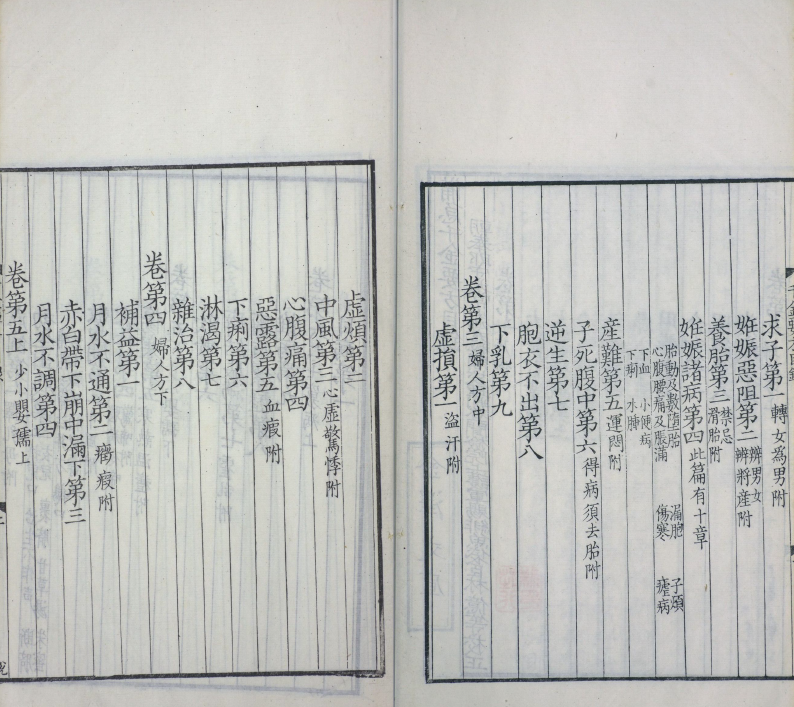 求子第一 轉女為男附
姙娠惡阻第二 辨男女 辨將産附
養胎第三 禁忌 滑胎附
姙娠諸病第四 此篇有十章
胎動及數墮胎 漏胞 子煩
心腹腰痛及脹滿 傷寒 瘧病
下血 小便病
下痢 水腫
産難第五 運悶附
子死腹中第六 得病須去胎附
逆生第七
胞衣不出第八
下乳第九
卷第三 婦人方中
虛損第一 盜汗附
虛煩第二
中風第三 心虛驚悸附
心腹痛第四
惡露第五 血瘕附
下痢第六
淋渴第七
雜治第八
卷第四 婦人方下
補益第一
月水不通第二 癥瘕附
赤白帶下崩中漏下第三
月水不調第四
卷第五上 少小嬰孺上